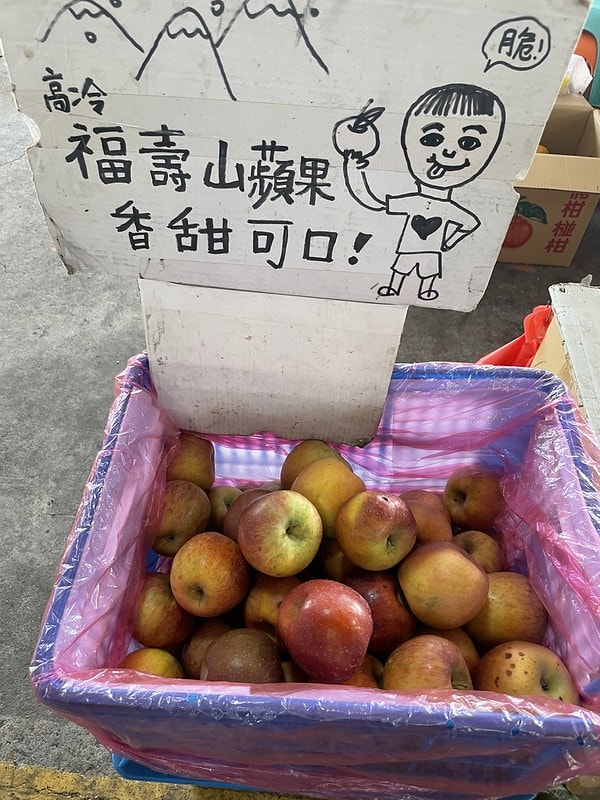 脆!
高冷
福壽山蘋果
香甜可口!
柑椪柑